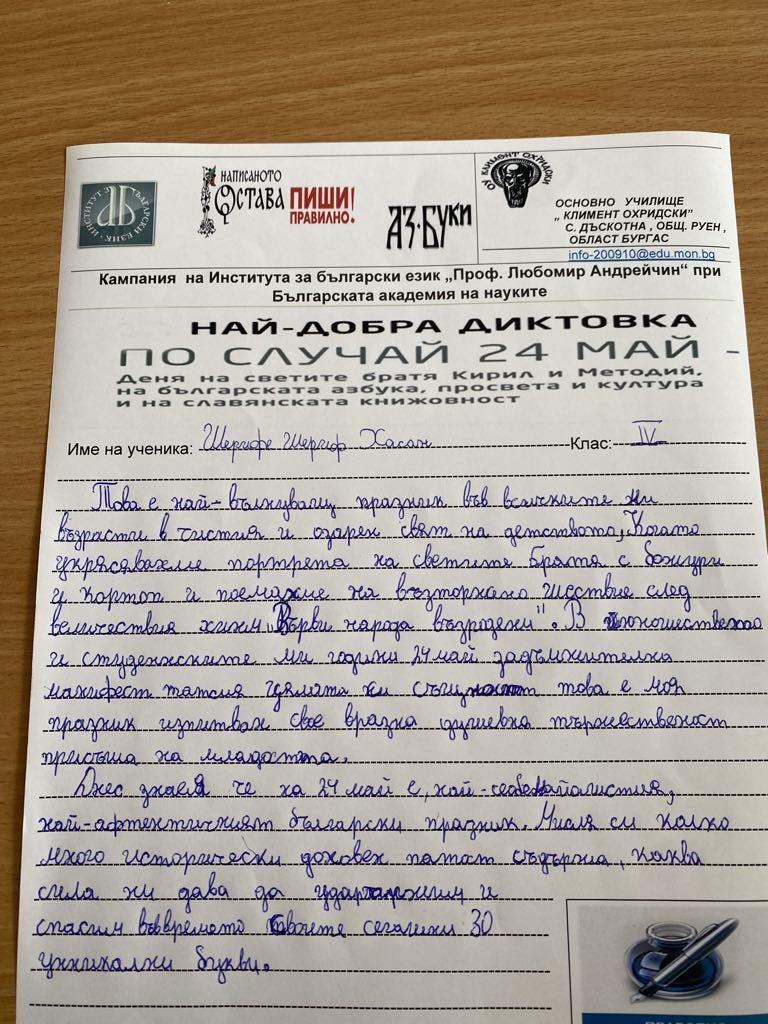 ИНСТИТУТ ЗА БЪЛГАРСКИ ЕЗИК
НАПИСАНОТО
ОСТАВА ПИШИ
ПРАВИЛНО!
АЗ·БУКИ
ОУ КЛИМЕНТ ОХРИДСКИ
ОСНОВНО УЧИЛИЩЕ
„ КЛИМЕНТ ОХРИДСКИ”
С. ДЪСКОТНА , ОБЩ. РУЕН ,
ОБЛАСТ БУРГАС
info-200910@edu.mon.bg
Кампания на Института за български език „Проф. Любомир Андрейчин“ при
Българската академия на науките
НАЙ-ДОБРА ДИКТОВКА
ПО СЛУЧАЙ 24 МАЙ -
Деня на светите братя Кирил и Методий,
на българската азбука, просвета и култура
и на славянската книжовност
Име на ученика: Шерифе Шериф Хасан Клас: IV
Това е най-вълнуващ празник във всичките ни
възрасти в чистия и озарен свят на детството, Когато
украсявахме портрета на светите Братя с божури
и поемахме на възторжано шествие след
величествия химн „Върви народе възродени". В юношественао
и студенските ми години 24 май задължителна
манифест татсия цялата ни това е моя
празник изпитвах своя вразна душевна тържественост
присъща на младостта.
Днес зная че на 24 май е, най-
най-афтентичният български празник. Мисля си колко
много исторически доховен патост съдържа, каква
сила ни дава да и
спасим във времето Своите сегашни 30
уникални букви.